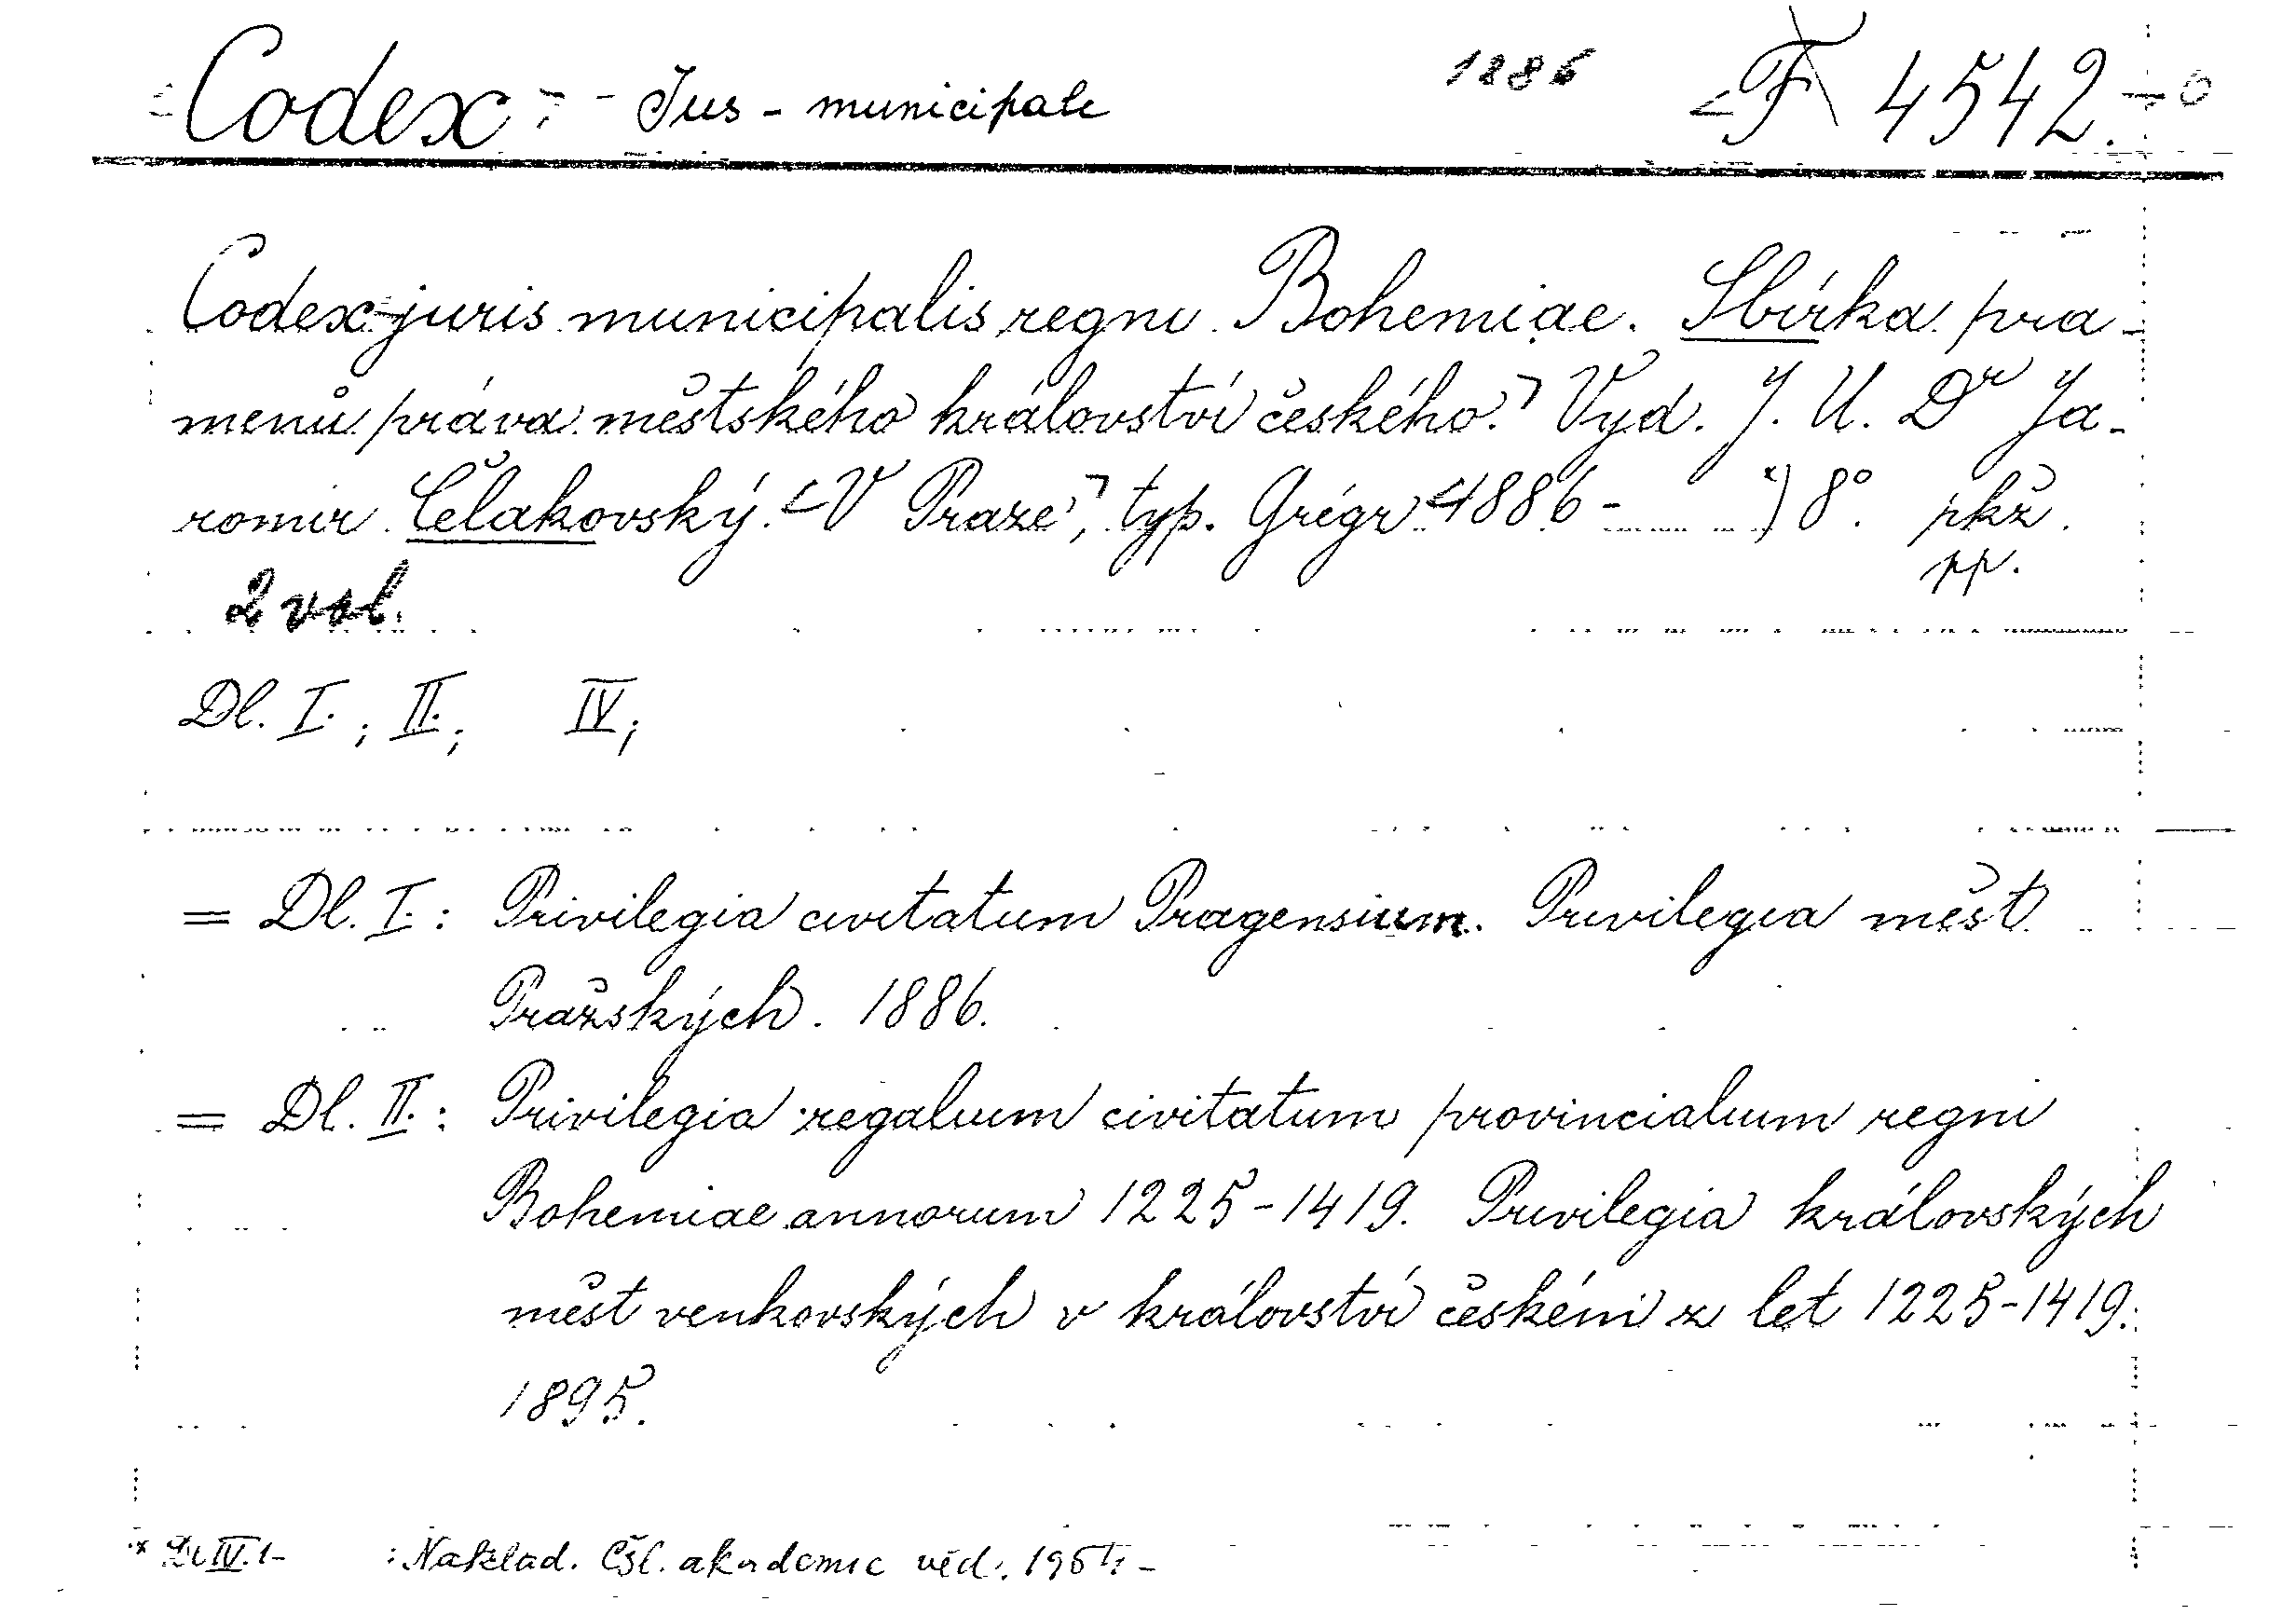 Codex - Jus - municipale 1886 F 4542.
Codex juris municipalis regni Bohemiae. Sbírka pra-
menů práva městského království českého. Vyd. J. U. Dr Ja-
romír Čelakovský. V Praze, typ. Grégr 1886 - *) 8°. pkž.
pp.
2 vol.
Dl. I.; II.; IV;
= Dl. I.: Privilegia civitatum Pragensium. Privilegia měst
Pražských. 1886.
= Dl. II.: Privilegia regalium civitatum provincialium regni
Bohemiae annorum 1225-1419. Privilegia královských
měst venkovských v království českém z let 1225-1419.
1895.
* Dl IV.1- : Naklad. Čsl. akademie věd.